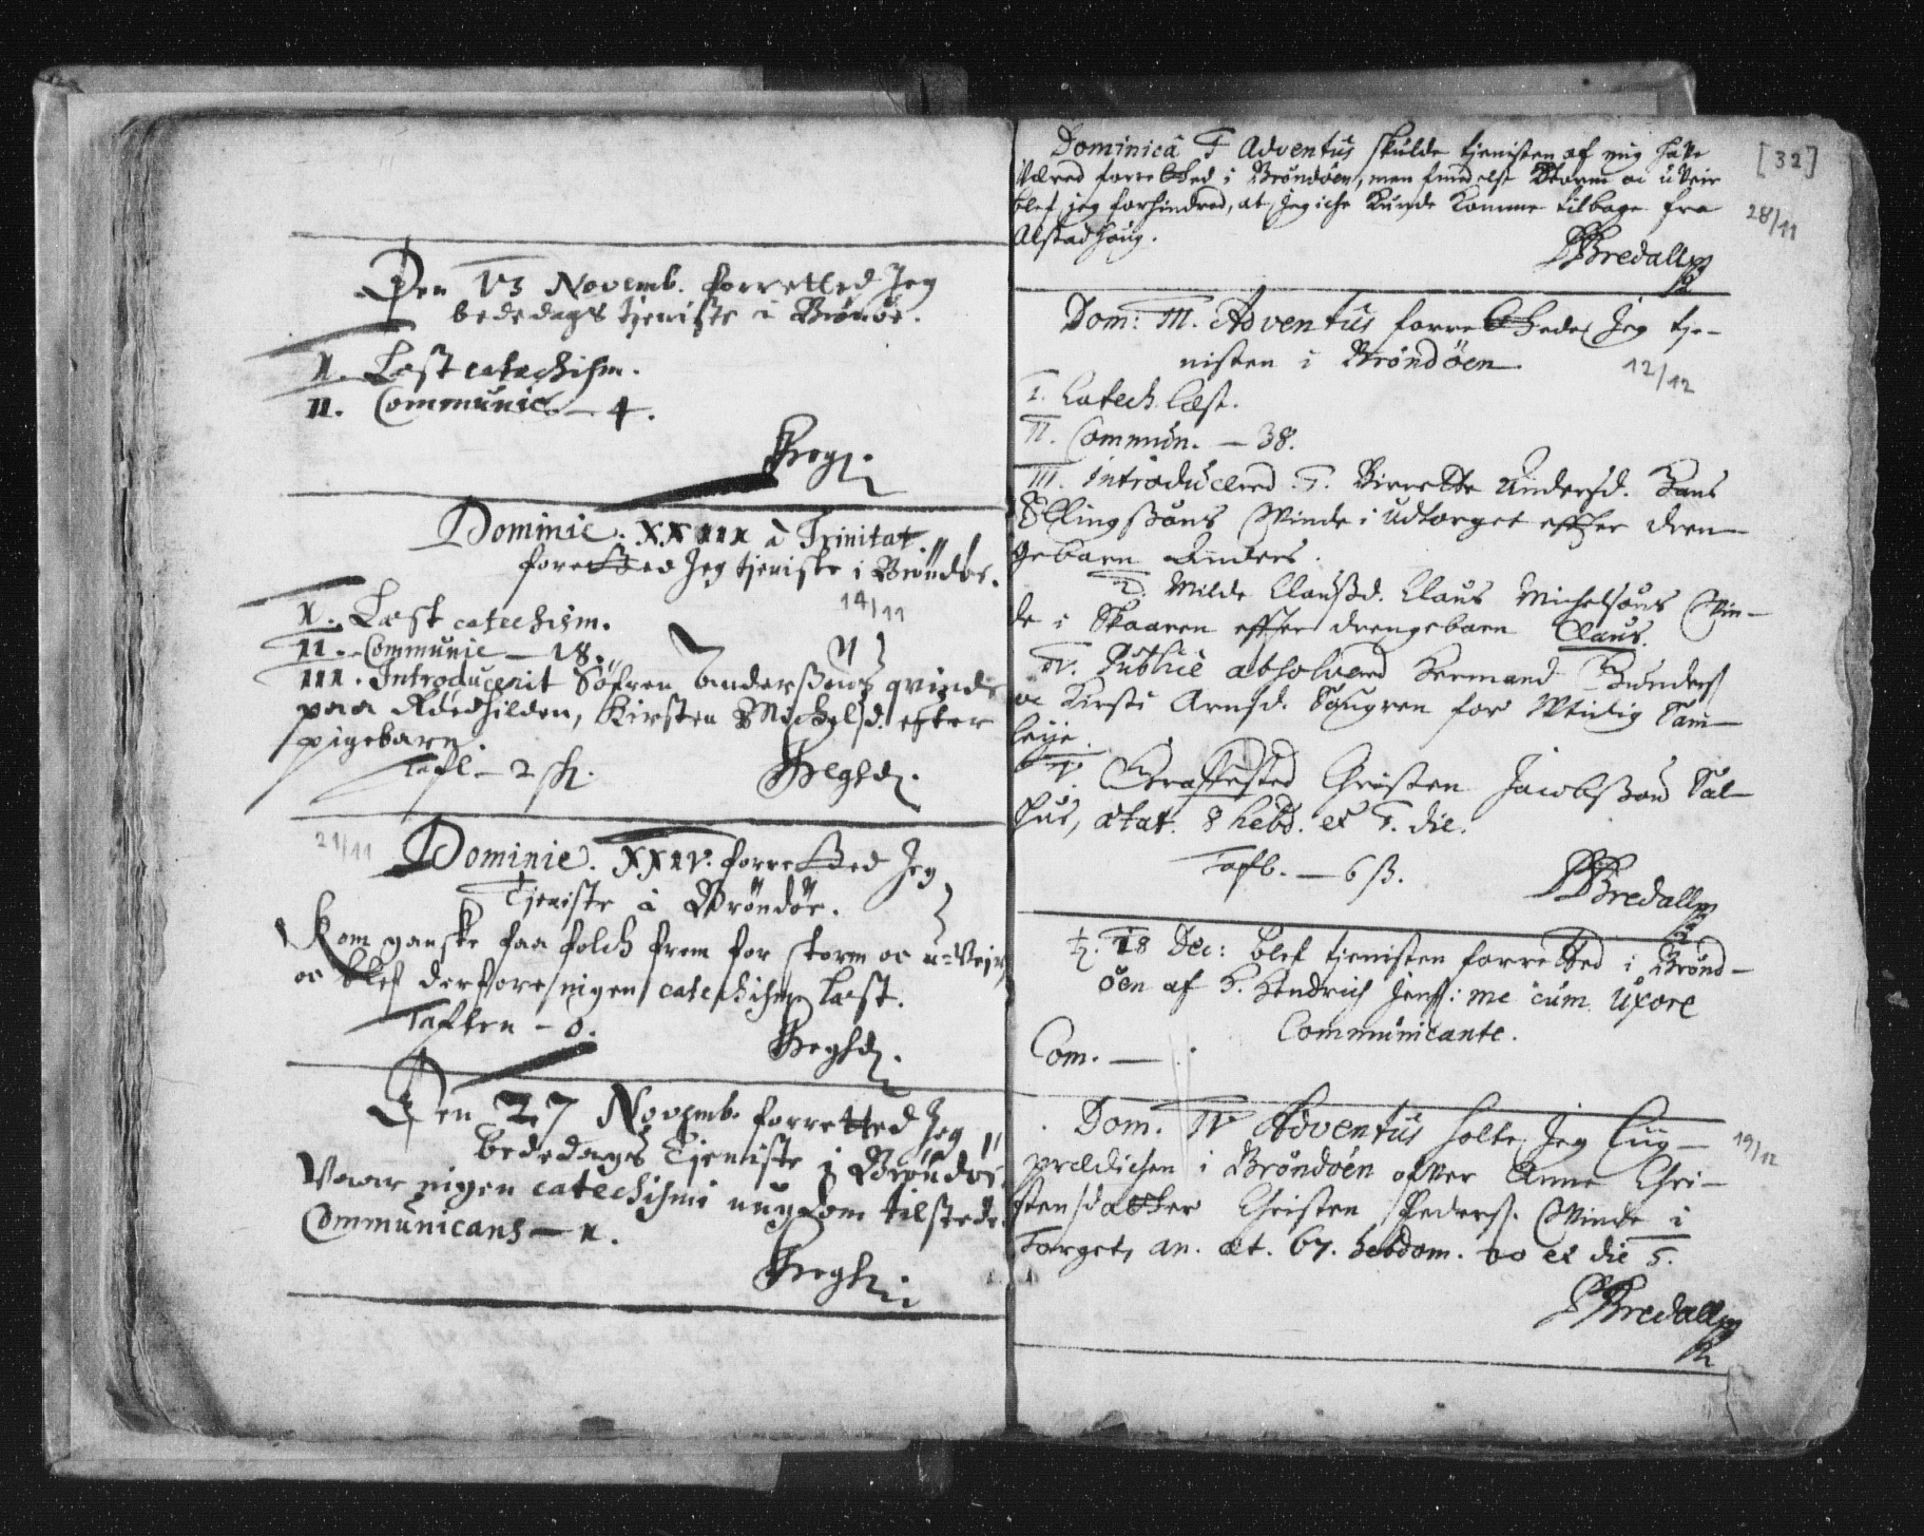 Den 13 Novemb. forretted Jeg
bededags tjeniste i Brönöe.
I. Læst catechism.
II. Communic. – 4.
Dominic. XXIII à Trinitat.
foretted Jeg tjeniste i Bröndöe.
14/11
I. Læst catechism.
II. Communic – 18.
III. Introducerit Söfren Anderssöns qvinde
paa Rödhilden, Kirsten Michelsd. efter
pigebarn.
Tafl – 2 sk.
21/11
Dominic. XXIV. forretted Jeg
Tjeniste i Bröndöe.
Kom ganske faa folch frem for storm oc u-Veir,
oc blef derfore ingen catechism læst.
Taflen – 0.
Den 27 Novemb. forretted Jeg
bededags Tjeniste i Bröndöe
Vaar ingen catechismi ungdom tilstede.
Communicans – 1.
[32]
Dominica I Adventus skulde tjenisten af mig have
Været forretthed i Bröndöen, men formedelst Storm oc uVeir
blef jeg forhindred, at Jeg iche kunde komme tilbage fra
Alstadhoug.
28/11
Bredall
Dom: III. Adventus forretthedes Jeg tje-
nisten i Bröndöen
12/12
I. Catech. læst.
II. Commun. – 38.
III. Introducered. 1. Birrette Andersd. Hans
Ellingssöns Qvinde i Udtorget effter dren-
gebarn Anders.
2. Milde Claussd. Claus Michelsöns Qvin-
de i Skaaren effter drengebarn Claus.
IV. Publicè absolverd Hermand
oc Kirsti Arnsd. Sougren for Utidig Sam-
leye.
V. Graffested Christen Jacobssön Sal-
hus, ætat. 8 hebd. et 1. die.
Tafl. – 6 ß.
Bredall
18 Dec: blef tjenisten forretted i Brönd-
öen af H. Hendrich Jenss: me cum Uxore
Communicante.
Com. –
Dom. IV Adventus holte Jeg Liig-
prædichen i Bröndöen ofver Anne Chri-
stensdatter Christen Pederss. Qvinde i
Torget, an. æt. 67. hebdom. 20 et die 5.
19/12
Bredall